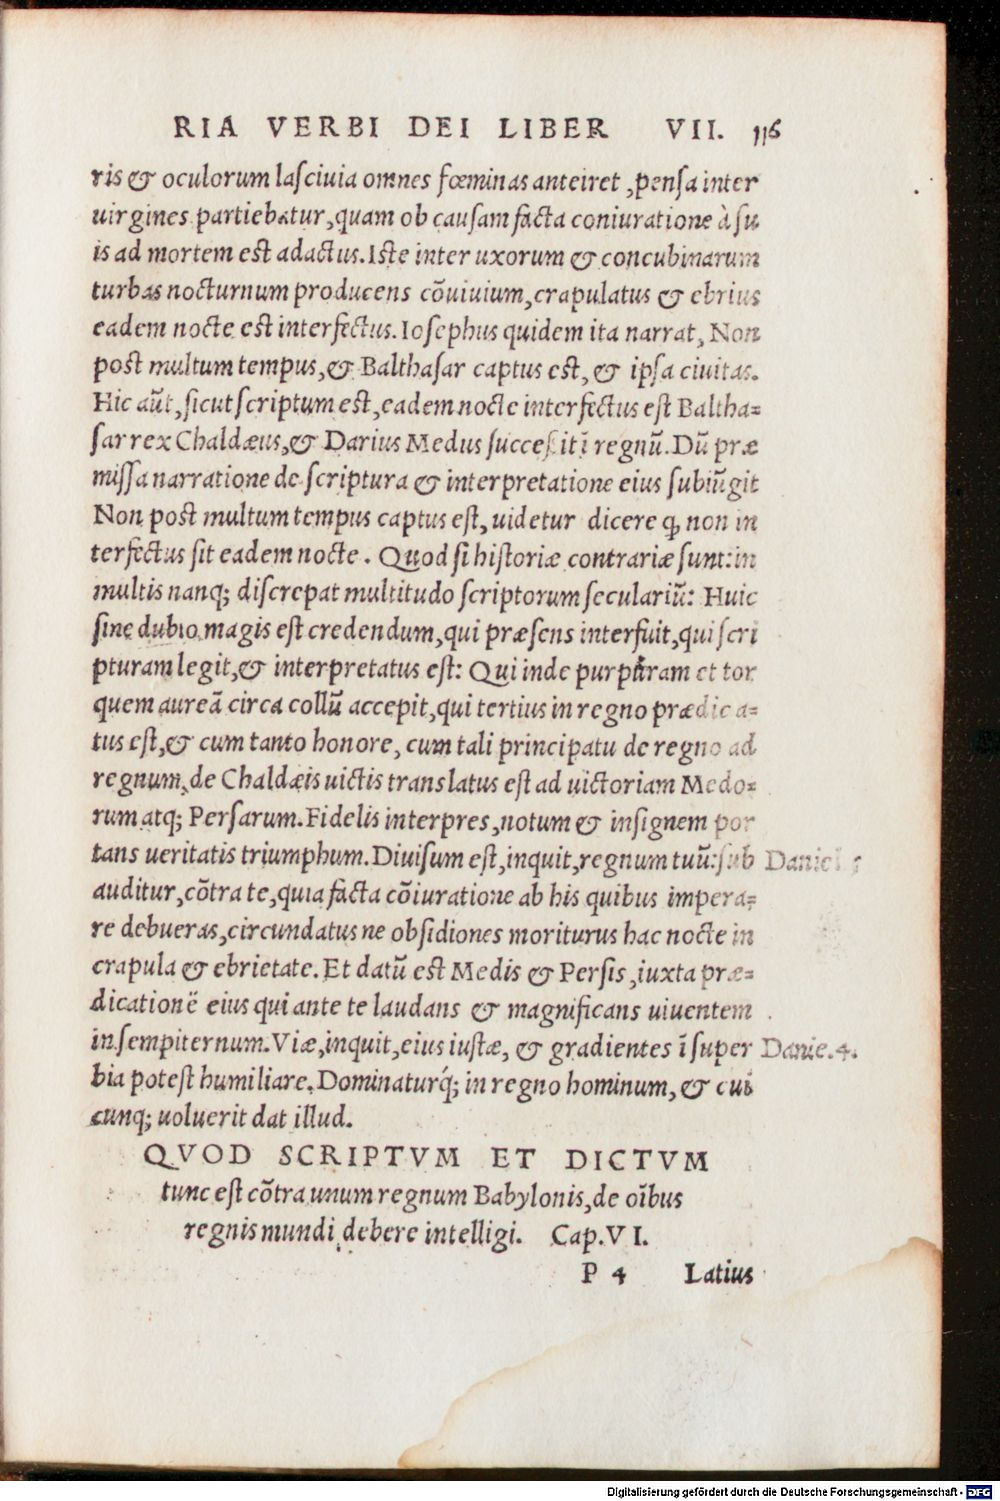 RIA VERBI DEI LIBER VII. 116
ris & oculorum laſciuia omnes fœminas anteiret, penſa inter
uirgines partiebatur, quam ob cauſam facta coniuratione à ſu
is ad mortem eſt adactus. Iſte inter uxorum & concubinarum
turbas nocturnum producens cõuiuium, crapulatus & ebrius
eadem nocte eſt interfectus. Ioſephus quidem ita narrat, Non
poſt multum tempus, & Balthaſar captus eſt, & ipſa ciuitas.
Hic aũt, ſicut ſcriptum eſt, eadem nocte interfectus eſt Baltha=
ſar rex Chaldæus, & Darius Medus ſucceſsit ĩ regnũ. Dũ præ
miſſa narratione de ſcriptura & interpretatione eius ſubiũgit
Non poſt multum tempus captus eſt, uidetur dicere ꝙ non in
terfectus ſit eadem nocte. Quod ſi hiſtoriæ contrariæ ſunt: in
multis nanq; diſcrepat multitudo ſcriptorum ſeculariũ: Huic
ſine dubio magis eſt credendum, qui præſens interfuit, qui ſcri
pturam legit, & interpretatus eſt: Qui inde purpuram et tor
quem aureã circa collũ accepit, qui tertius in regno prædica=
tus eſt, & cum tanto honore, cum tali principatu de regno ad
regnum, de Chaldæis uictis translatus eſt ad uictoriam Medo=
rum atq; Perſarum. Fidelis interpres, notum & inſignem por
tans ueritatis triumphum. Diuiſum eſt, inquit, regnum tuũ: ſub Daniel. 5
auditur, cõtra te, quia facta cõiuratione ab his quibus impera=
re debueras, circundatus ne obſidiones moriturus hac nocte in
crapula & ebrietate. Et datũ eſt Medis & Perſis, iuxta præ=
dicationẽ eius qui ante te laudans & magnificans uiuentem
in ſempiternum. Viæ, inquit, eius iuſtæ, & gradientes ĩ ſuper Danie. 4.
bia poteſt humiliare. Dominaturq́; in regno hominum, & cui
cunq; uoluerit dat illud.
QVOD SCRIPTVM ET DICTVM
tunc eſt cõtra unum regnum Babylonis, de oĩbus
regnis mundi debere intelligi. Cap. VI.
P 4 Latius
Digitalisierung gefördert durch die Deutsche Forschungsgemeinschaft - DFG